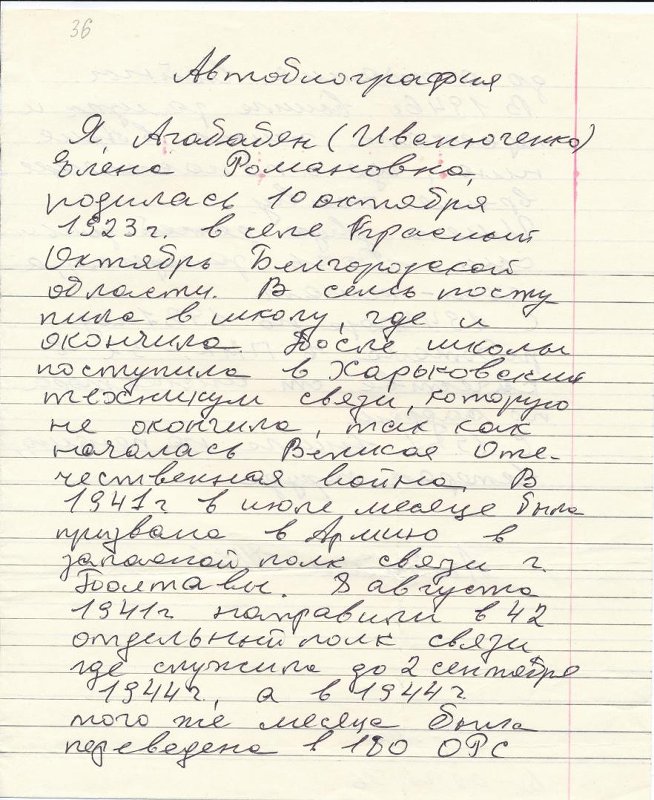 36
Автобиография
Я, Агабабян (Иванюченко)
Елена Романовна,
родилась 10 октября
1923 г. в селе Красный
Октябрь Белгородской
области. В семь посту
пила в школу, где и
окончила. После школы
поступила в Харьковский
техникум связи, которую
не окончила, так как
началась Великая Оте-
чественная война. В
1941 г в июле месяце была
призвана в Армию в
запасной полк связи г.
Полтавы. 8 августа
1941 г направили в 42
отдельный полк связи
где служила до 2 сентября
1944 г, а в 1944 г.
того же месяца была
переведена в 180 ОРС